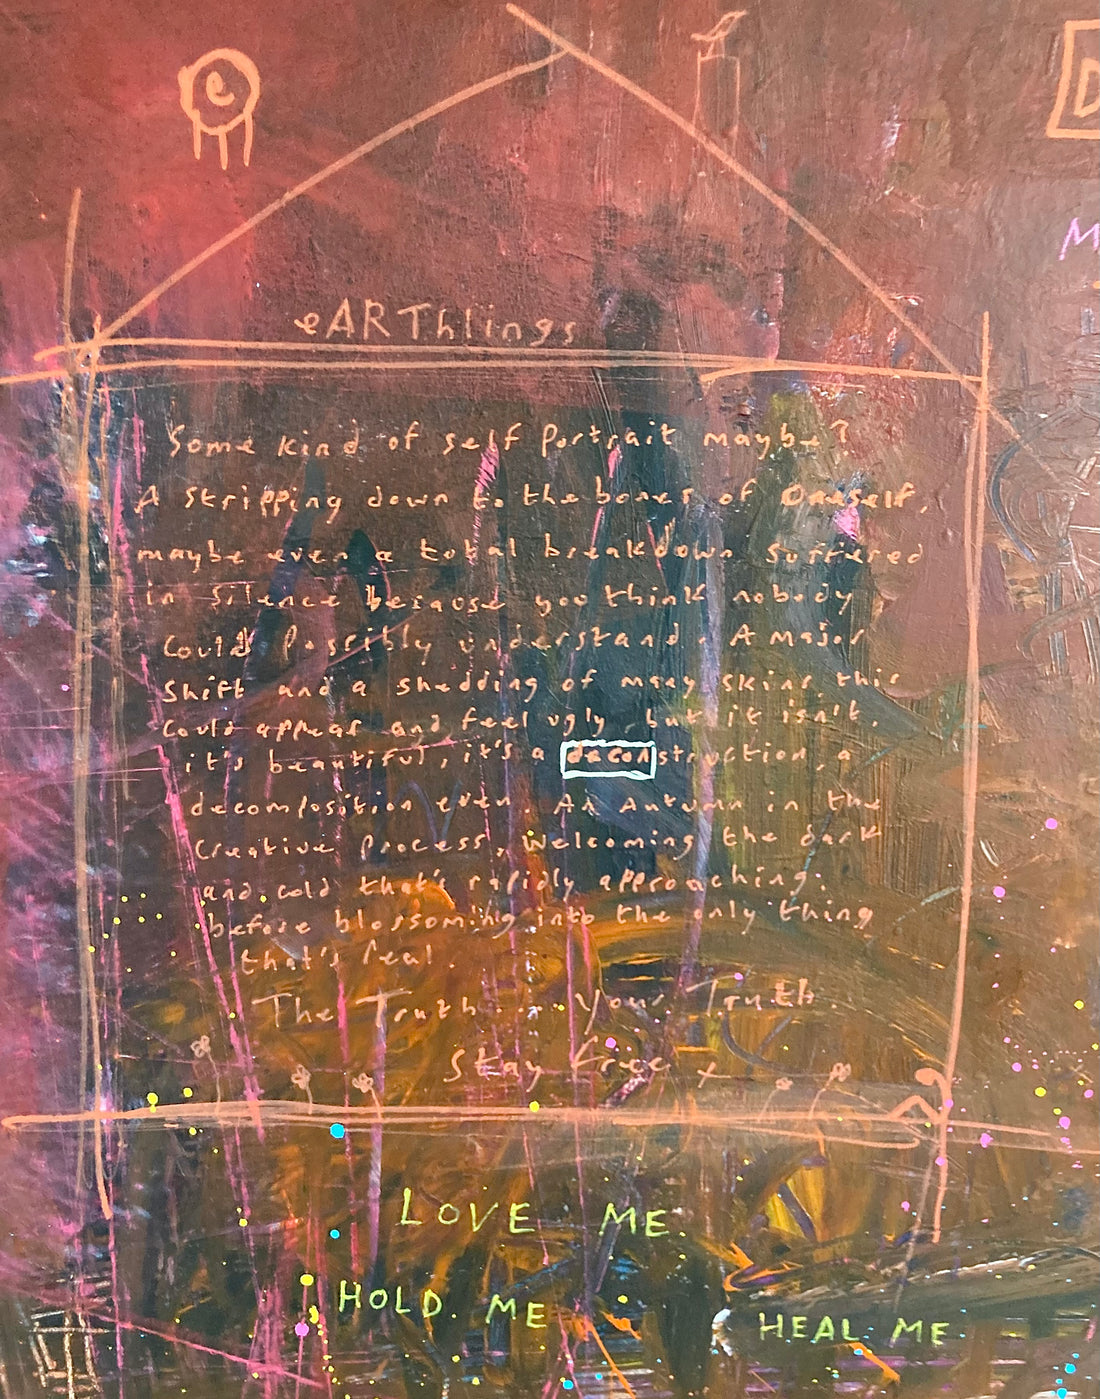 e
D
M
eARThlings
Some kind of self portrait maybe?
A stripping down to the bones of Oneself,
maybe even a total breakdown suffered
in silence because you think nobody
could possibly understand. A major
shift and a shedding of many skins, this
could appear and feel ugly but it isn't.
it's beautiful, it's a deconstruction, a
decomposition even. An Autumn in the
Creative Process, welcoming the dark
and cold that's rapidly approaching.
before blossoming into the only thing
that's real.
The Truth... Your Truth.
Stay free x
LOVE ME.
HOLD. ME
HEAL ME